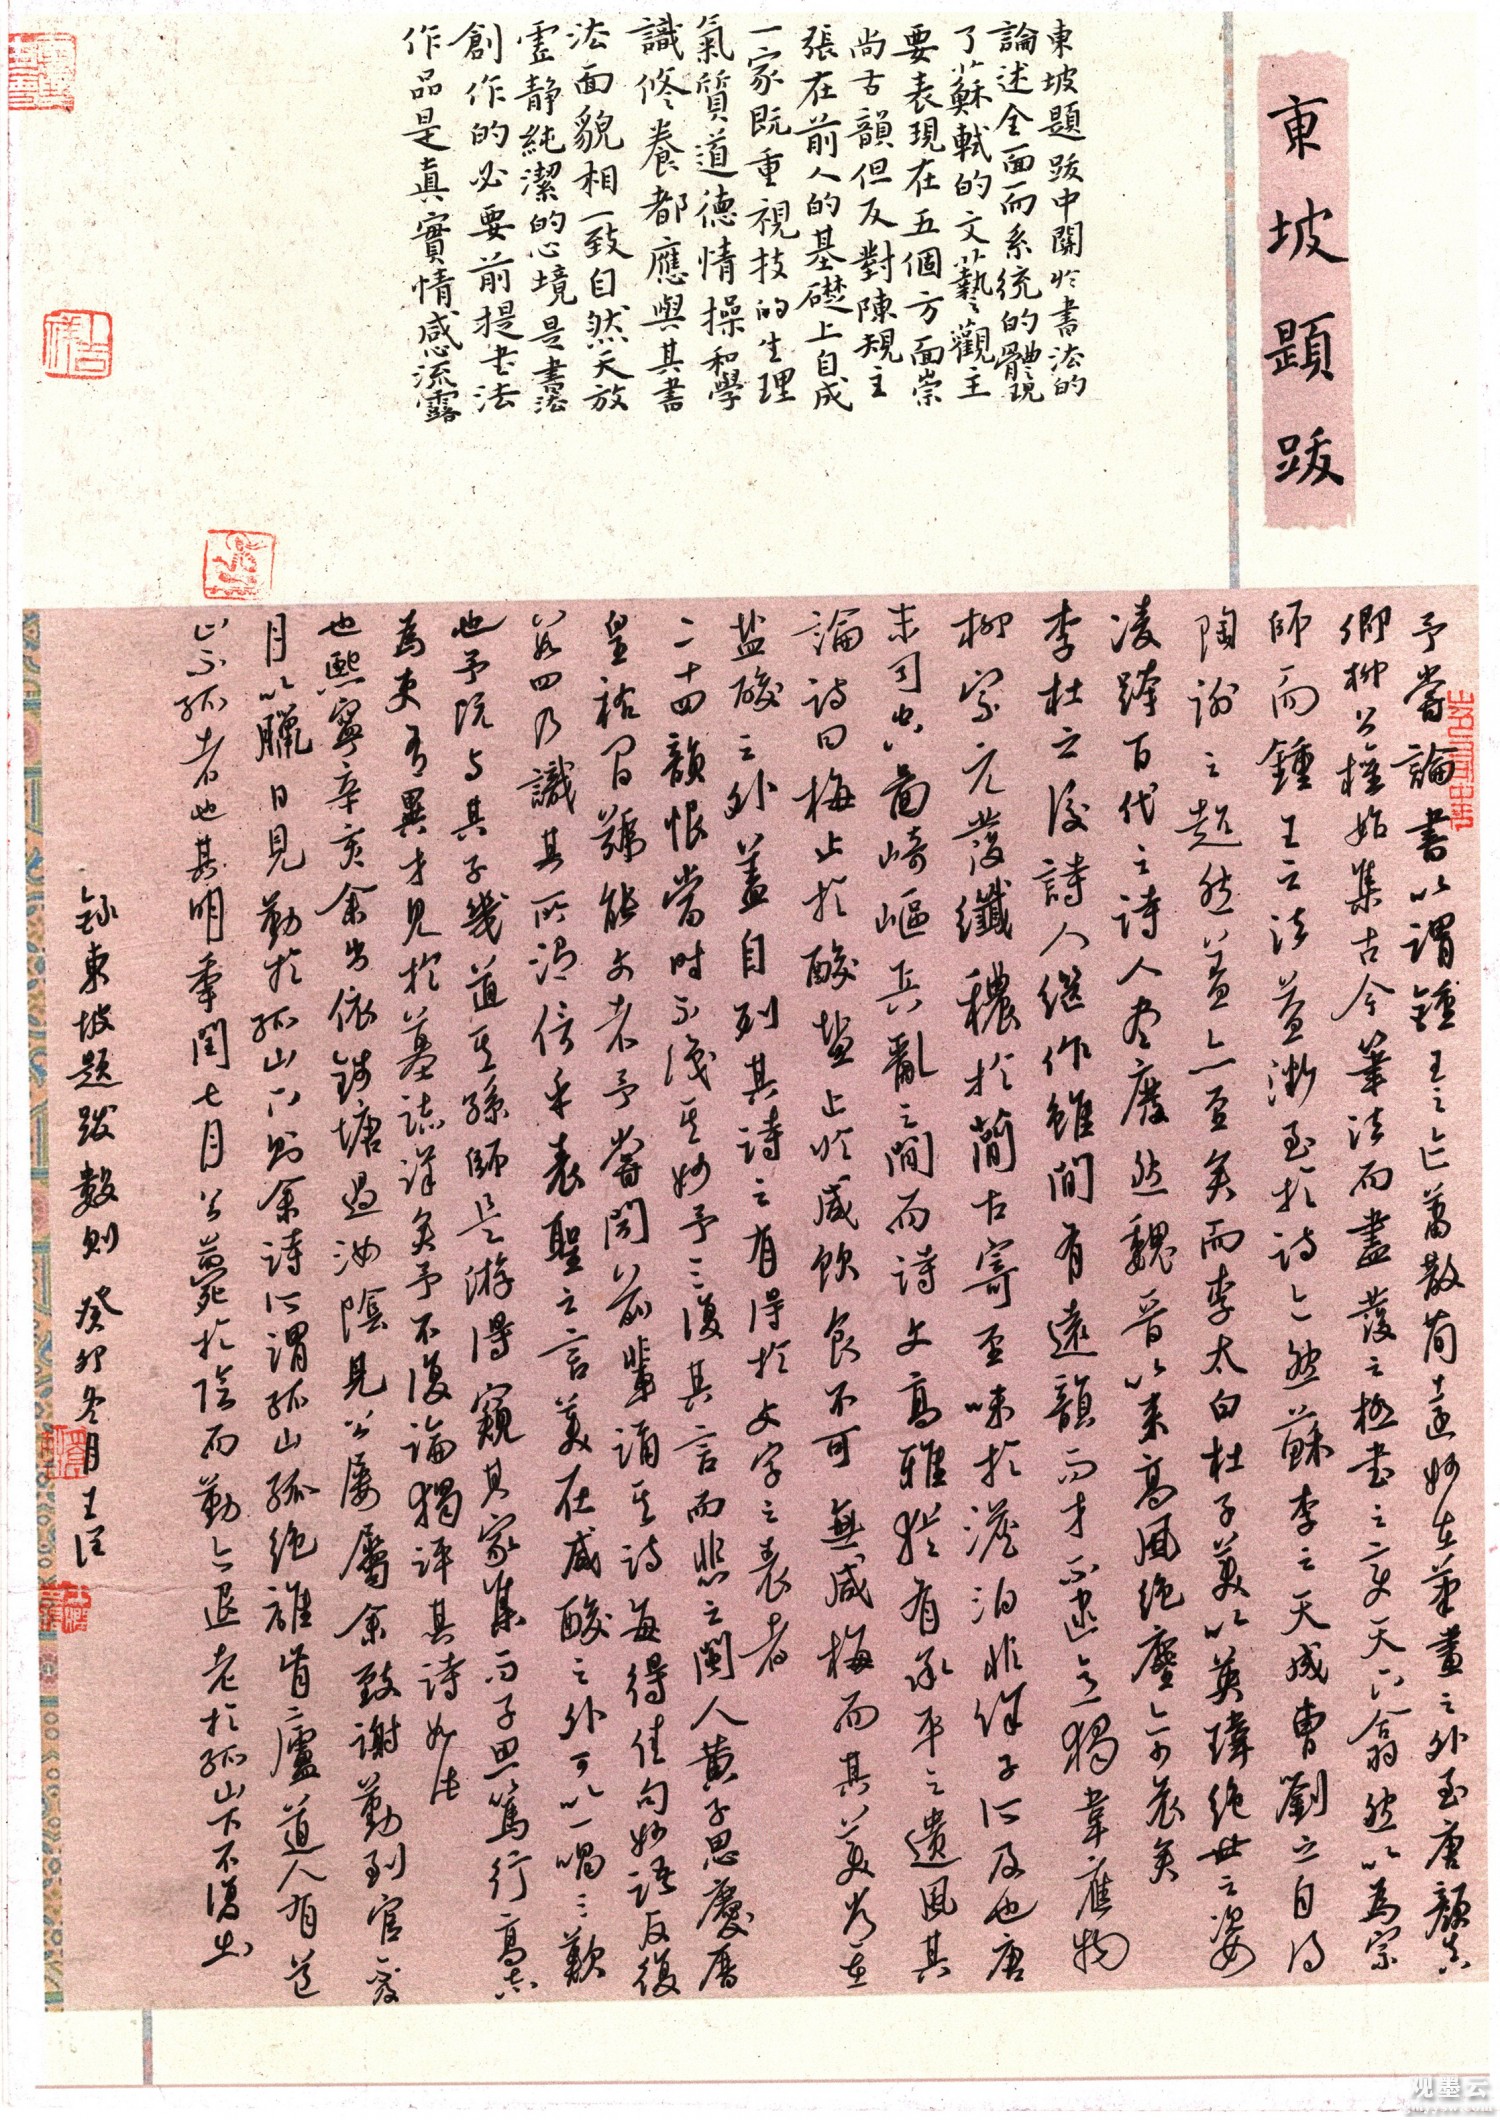 東坡題跋
東坡題跋中關於書法的
論述全面而系统的體現
了蘇軾的文藝觀主
要表現在五個方面崇
尚古韻但反對陳規主
張在前人的基礎上自成
一家既重視技的生理
氣質道德情操和學
識修養都應與其書
法面貌相一致自然天放
虛静純潔的心境是書法
創作的必要前提书法
作品是真實情感流露
予嘗論書以謂鍾王之迹蕭散簡遠妙在筆畫之外至唐顏真
卿柳公權始集古今筆法而盡發之極書之变天下翕然以為宗
師而鍾王之法益澌至於詩亦然蘇李之天成曹劉之自得
陶謝之超然蓋亦至矣而李太白杜子美以英瑋絶世之姿
凌跨百代之詩人尽廢然魏晋以来高風絶塵亦少衰矣
李杜之後詩人继作雖間有遠韻而才不逮意獨韋應物
柳宗元發纖穠於簡古寄至味於澹泊非餘子所及也唐
末司空圖崎嶇兵亂之間而詩文高雅猶有承平之遺風其
論詩曰梅止於酸盐止於咸飲食不可無咸梅而其美常在
盐酸之外蓋自列其詩之有得於文字之表者
二十四韻恨當时不識其妙予三復其言而悲之閩人黄子思慶曆
皇祐间號能文者予嘗聞前輩誦其詩每得佳句妙語反復
數四乃識其所谓信乎表聖之言美在咸酸之外可以一唱三歎
也予既与其子幾道其孫師是游得窺其家集而子思篤行高志
為吏有異才見於墓誌详矣予不復論獨评其詩如此
也熙寧辛亥余出依錢塘過汝陰見公屡屬余致謝勤到官不及
月以臘日見勤於孤山下则余詩所謂孤山孤绝誰肯廬道人有道
山不孤者也其明季閏七月公薨於陰而勤亦退老於孤山下不復出
錄東坡題跋數則 癸卯冬月王
观墨云